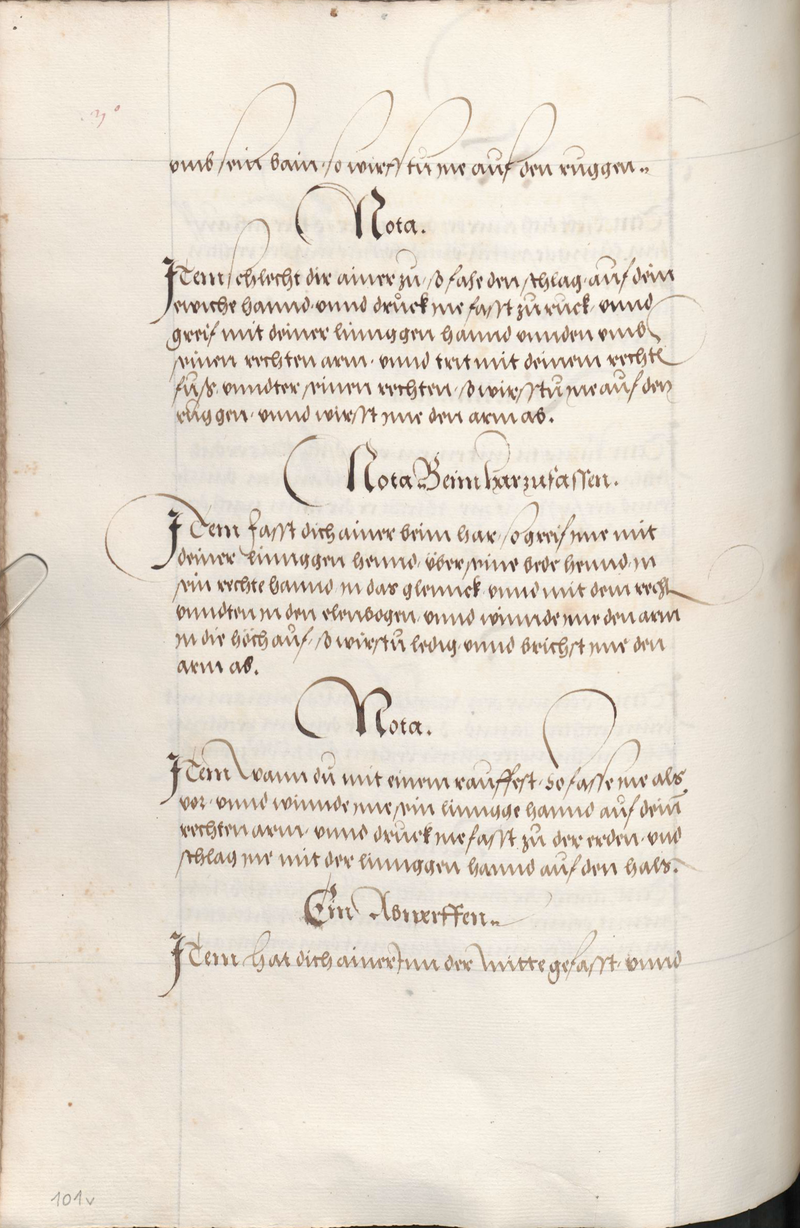 vmb sein bain · so wirfstu jne auf den ruggen ..
Nota.
JTem schlecht dir ainer zu · so fahe den schlag · auf dein
ewiche hannd · vnnd druck jne fasst zu ruck · vnnd
greif mit deiner linnggen hannd vnnden vmb
seinen rechten arm · vnnd trit mit deinem rechtē
fuß · vnndter seinen rechten · so wirfstu jne auf den
ruggen · vnnd wirfst jme den arm ab.
Nota Beim har zufassen.
JTem fasst dich ainer beim har · so greif jme mit
deiner linnggen hennd · über seine bede hennd in
sein rechte hannd in das glennck · vnnd mit dem recht
vnndten in den elenbogen · vnnd winnde jme den arm
in die höch auf · so wirstu ledig · vnnd brichst jme den
arm ab.
Nota.
JTem wann du mit einem rauffest · So fasse jne als
vor · vnnd winnde jme sein linngge hannd auf dein
rechten arm · vnnd druck jne fasst zu der erden · vnd
schlag jne mit der linnggen hannd auf den hals.
Ein Abwerffen ..
JTem hat dich ainer Jnn der mitte gefasst · vnnd
101v